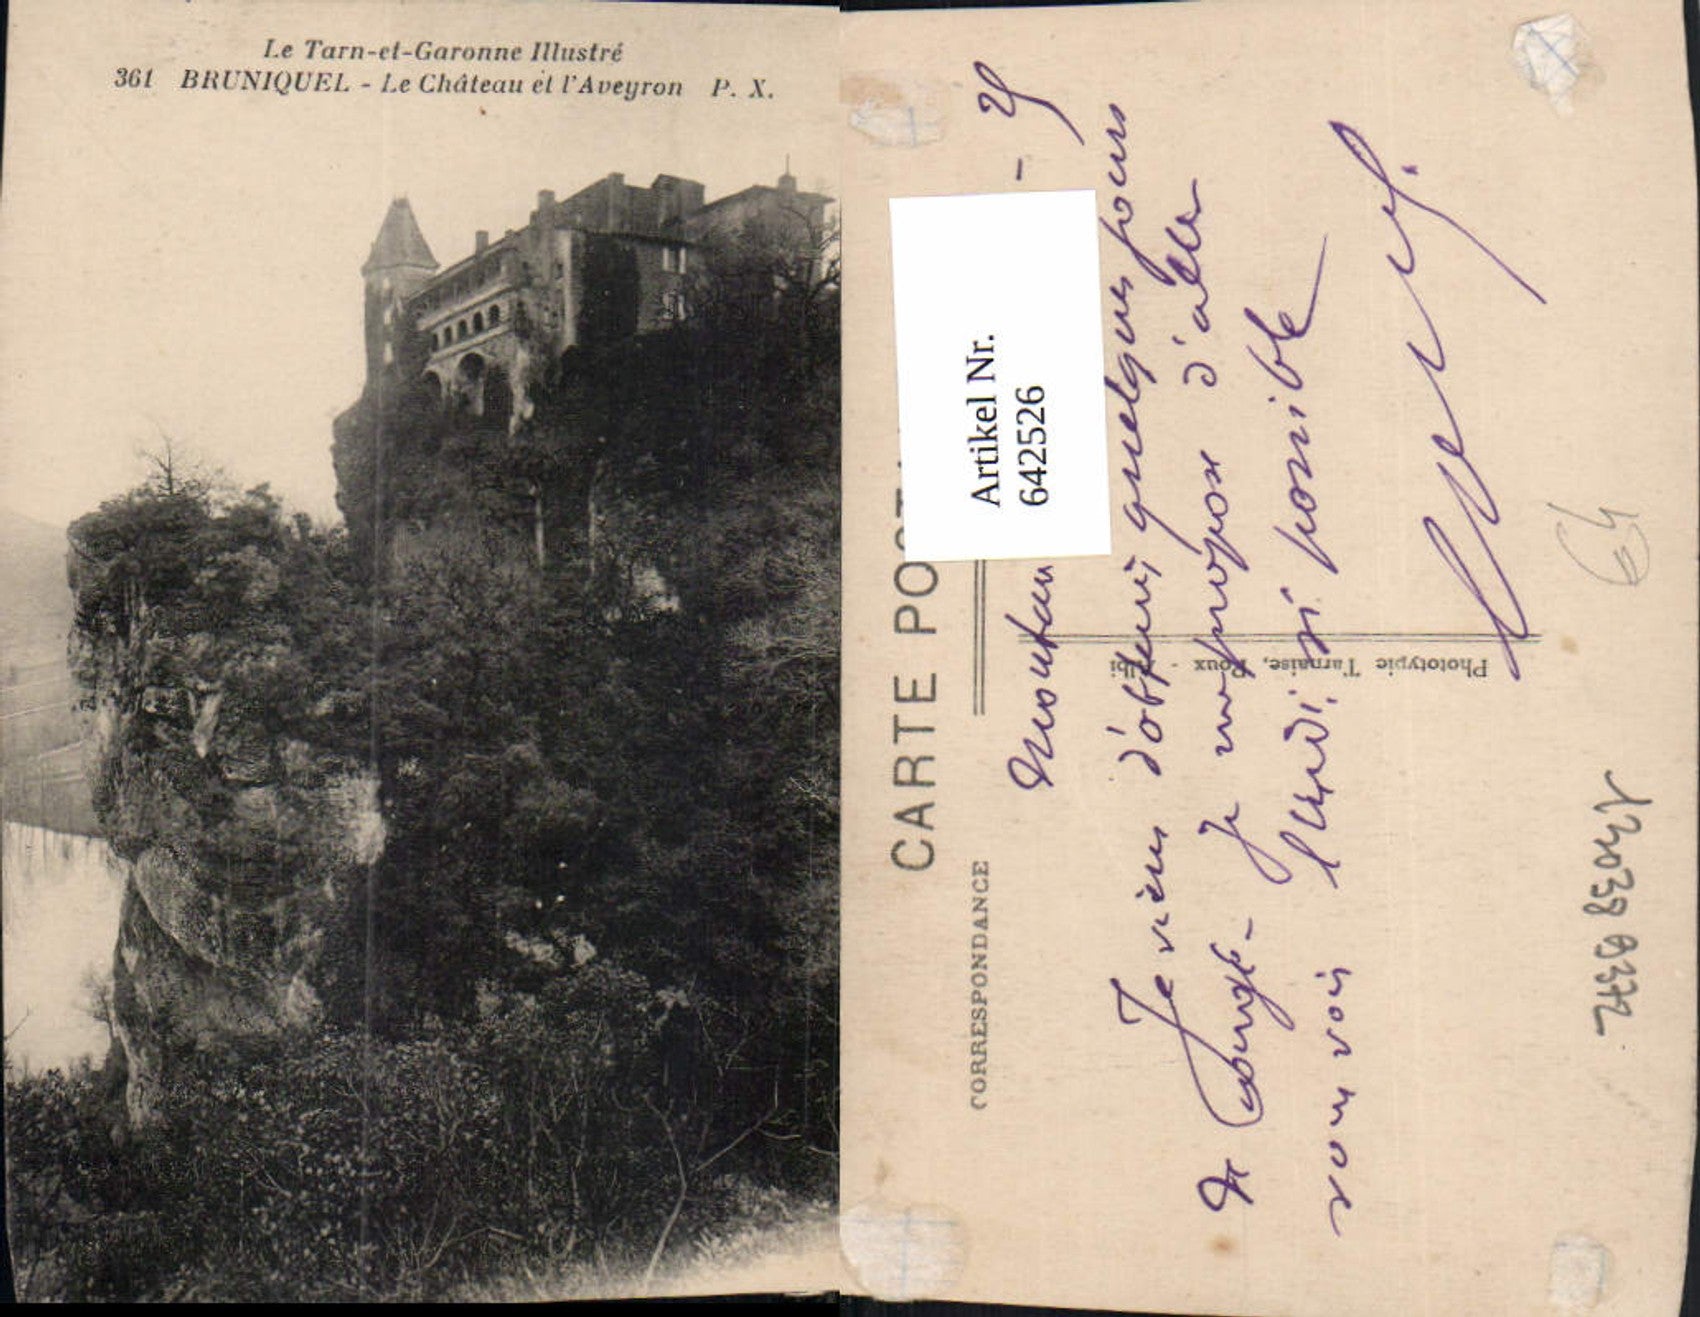 Le Tarn-et-Garonne Illustré
361 BRUNIQUEL - Le Château et l'Aveyron P. X.
CARTE POST
CORRESPONDANCE
Artikel Nr.
642526
Phototypie Tarnaise, Poux - Albi
Montau - 25
Je viens d'obtenir quelques jours
de congé - Je me propose d'aller
vous voir lundi si possible
64